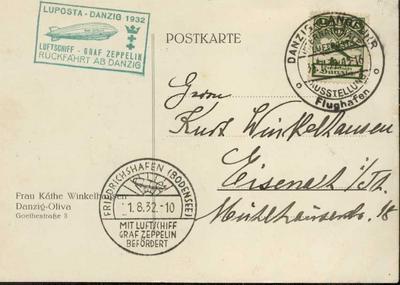 LUPOSTA - DANZIG 1932
LUFTSCHIFF - GRAF ZEPPELIN
RÜCKFAHRT AB DANZIG
POSTKARTE
DANZIG-LANGFUHR
LUFTPOST
AUSSTELLUNG
Flughafen
Danzig
Herrn
Kurt Winkelhausen
Eisenach i/Th.
Mühlhauserstr. 18
FRIEDRICHSHAFEN (BODENSEE)
1.8.32.-10
MIT LUFTSCHIFF
GRAF ZEPPELIN
BEFÖRDERT
Frau Käthe Winkelhausen
Danzig-Oliva
Goethestraße 3